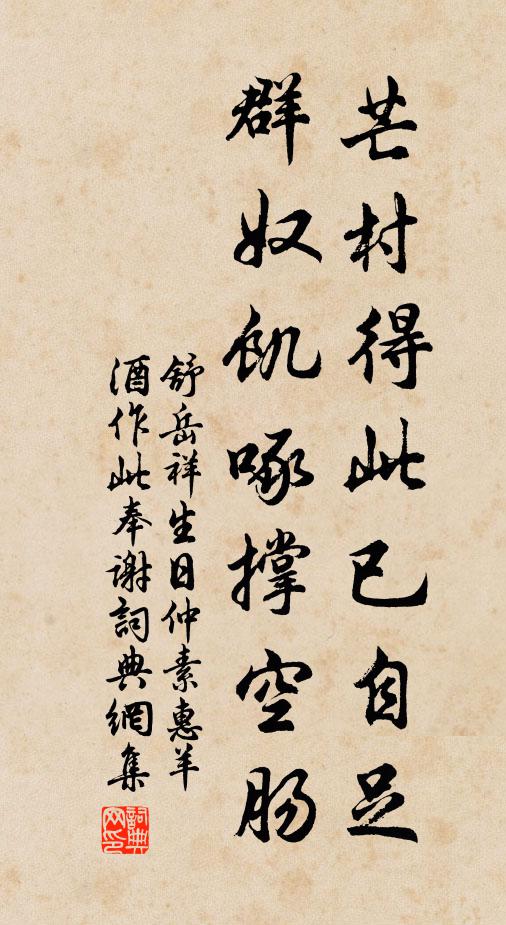 芒村得此已自足
群奴飢啄撑空腸
舒岳祥生日仲素惠羊
酒作此奉谢詞典網集
詞典网印